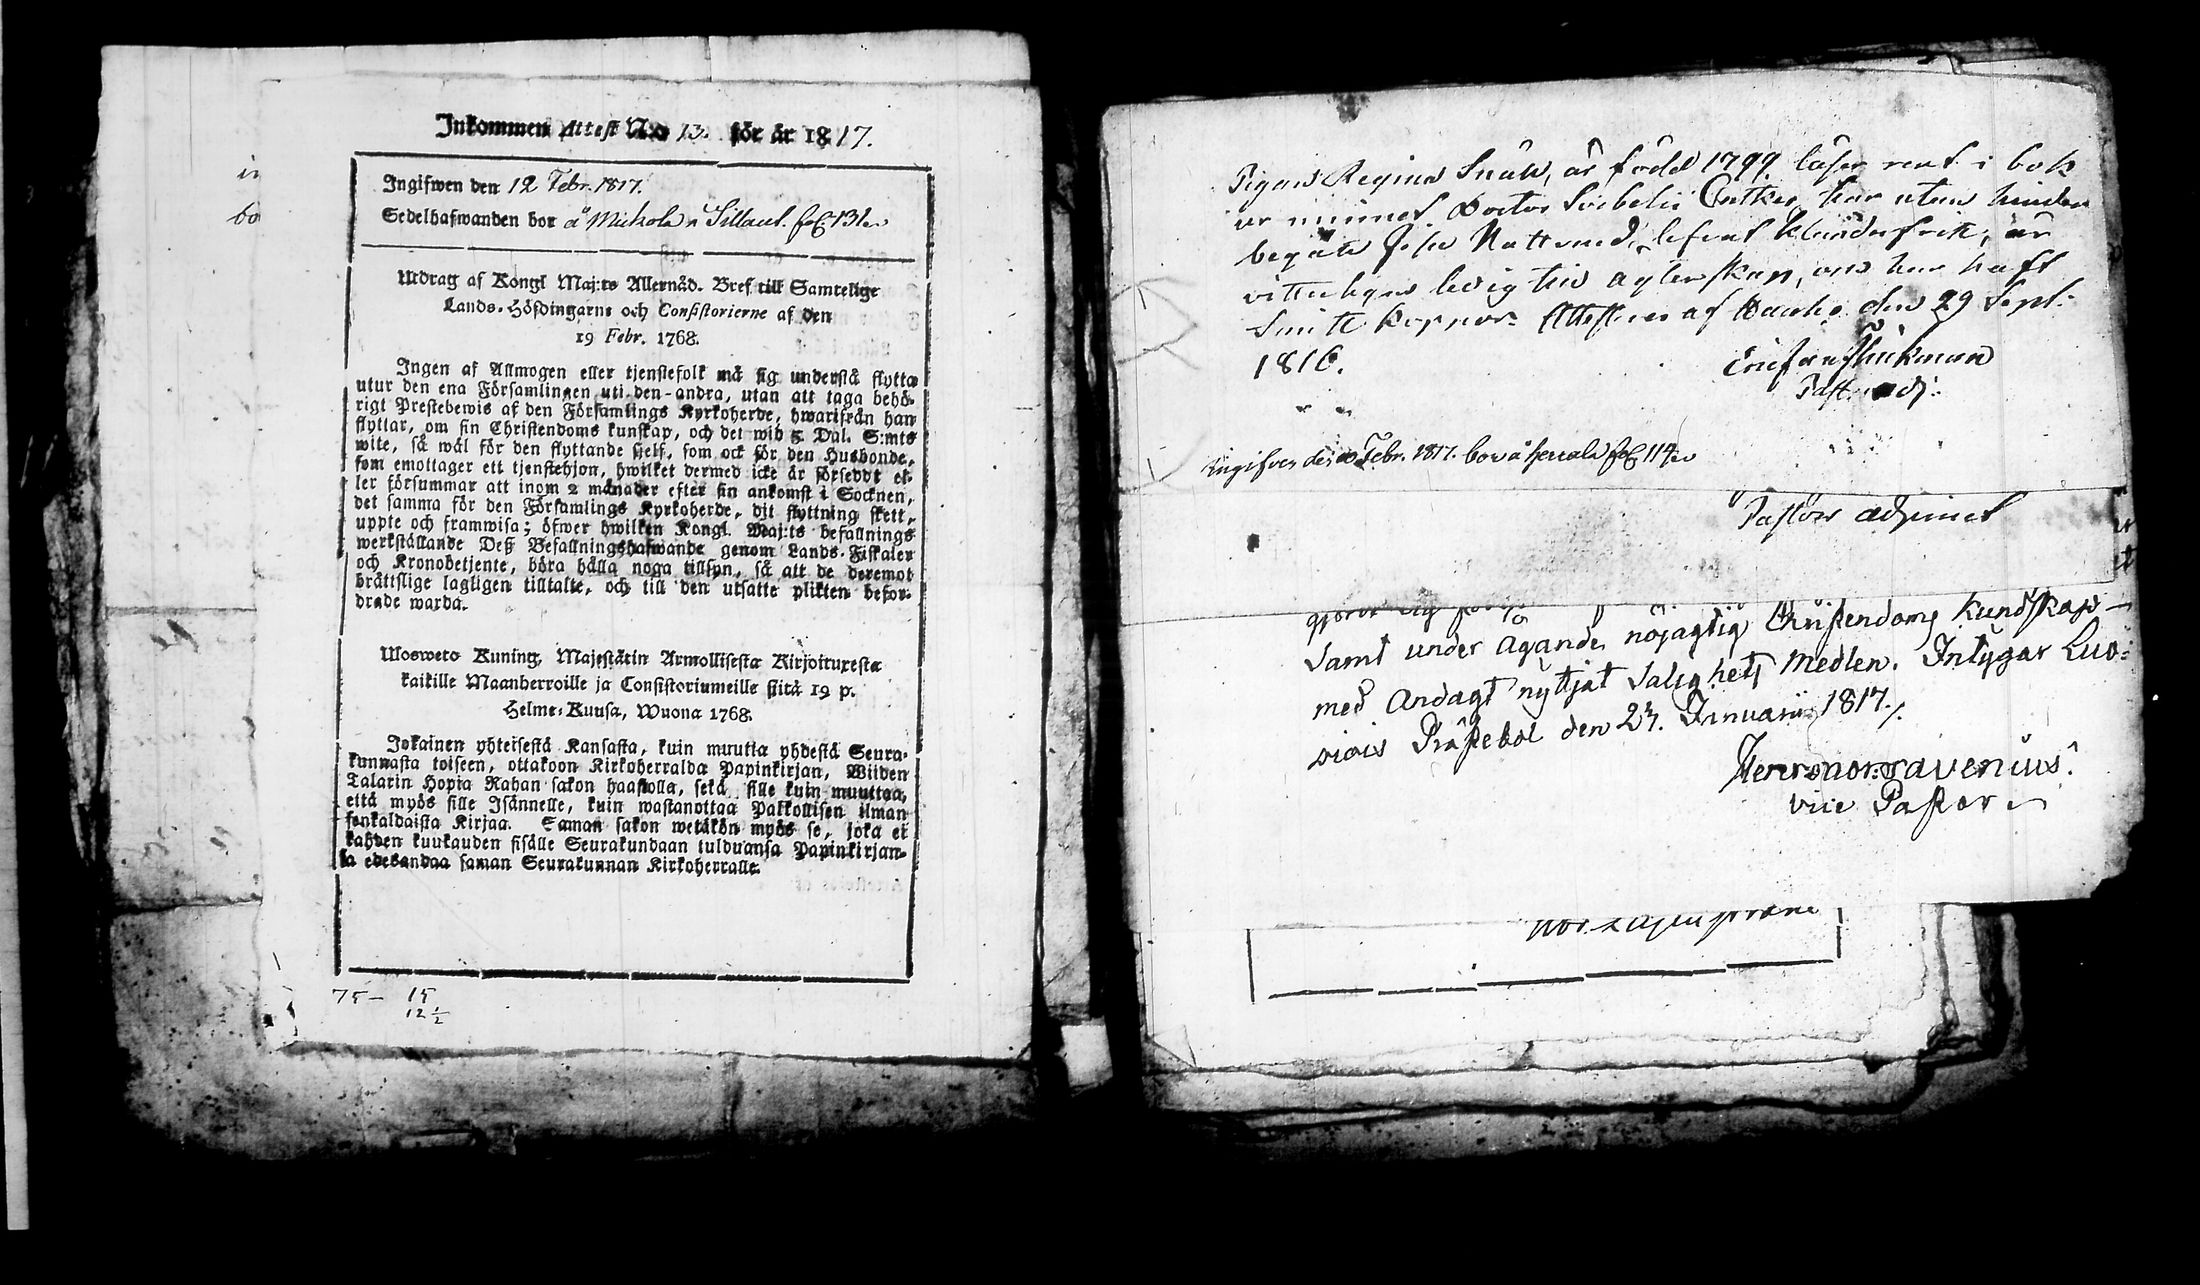 Inkommen Attest No 13. för år 1817.
Ingifwen den 12 Febr. 1817.
Sedelhafwanden bor å Mickola i Sillaut. fol 131.
Utdrag af Kongl Maj:ts Allernåd. Bref till Samtelige
Lands-Höfdingarne och Consistorierne af den
19 Febr. 1768.
Ingen af Allmogen eller tjenstefolk må sig understå flytta
utur den ena Församlingen uti den-andra, utan att taga behö-
rigt Prestebewis af den Församlings Kyrkoherde, hwarifrån han
flyttar, om sin Christendoms kunskap, och det wid 5 Dal. S:mts
wite, så wäl för den flyttande sjelf, som ock för den Husbonde,
som emottager ett tjenstehjon, hwilket dermed icke är försedt el-
ler försummar att inom 2 månader efter sin ankomst i Socknen,
det samma för den Församlings Kyrkoherde, dit flyttning skett,
uppte och framwisa; öfwer hwilken Kongl. Maj:ts befallnings
werkställande Deß Befallningshafwande genom Lands-Fiskaler
och Kronobetjente, böra hålla noga tillsyn, så att de deremot
bråttslige lagligen tilltalte, och till den utsatte plikten befor-
drade warda.
Ulosweto Kuning. Majestätin Armollisesta Kirjoituxesta
kaikille Maanherroille ja Consistoriumeille siitä 19 p.
Helme-Kuusa, Wuona 1768.
Jokainen yhteisestä Kansasta, kuin muutta yhdestä Seura-
kunnasta toiseen, ottakoon Kirkoherralda Papinkirjan, Wiiden
Talarin Hopia Rahan sakon haastolla, sekä sille kuin muuttaa,
että myös sille Isännelle, kuin wastanottaa Palkollisen ilman
senkaldaista Kirjaa. Saman sakon wetäkön myös se, joka ei
kahden kuukauden sisälle Seurakundaan tulduansa Papinkirjan-
sa edesandaa saman Seurakunnan Kirkoherralle.
75- 15
12 1/2
bo
Pigan Regina är född 1799, läser rent i bok
ur minnet Doctor Svebelii har utan hinder
begått H. Nattvard,
vitterligen ledig till ägtenskap, och har haft
koppor. Attesteras af den 29 Sept:
1816.
Past. adj:
Ingifven den Febr. 1817. bor å fol 114
Pastors adjunct
Samt under ägande nöjagtig Christendoms Kundskap
med Andagt nyttjat Salighets Medlen. Intygar Luo-
viois Prästebol den 27. Januarii 1817.
vice Pastor